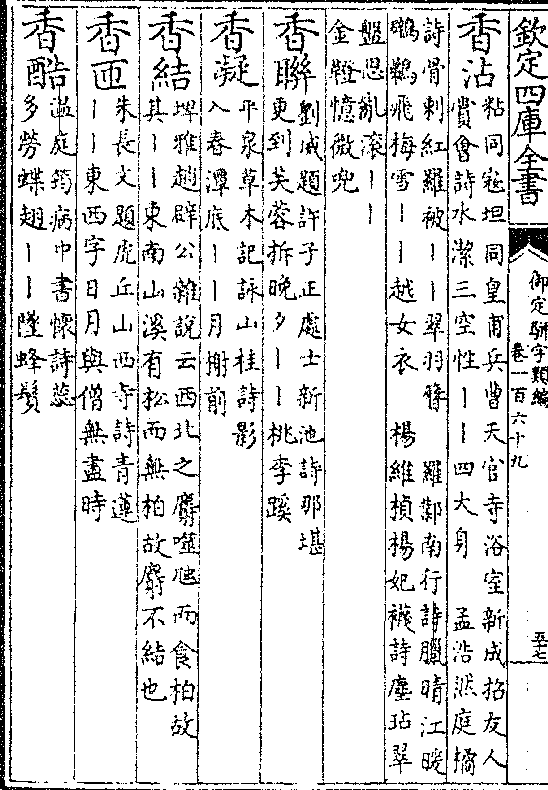 欽定四庫全書
御定駢字類編
卷一百六十九
五十七
香沾
粘同寇坦同皇甫兵曹天官寺浴室新成招友人
賞會詩水潔三空性丨丨四大身　孟浩然庭橘
詩骨刺紅羅被丨丨翠羽簪　羅鄴南行詩臘晴江暖
鸊鵜飛梅雪丨丨越女衣　楊維楨楊妃襪詩塵玷翠
盤思亂滾丨丨
金鐙憶微兜
香聯
劉威題許子正處士新池詩那堪
更到芙蓉拆晚夕丨丨桃李蹊
香凝
平泉草木記詠山桂詩影
入春潭底丨丨月榭前
香結
埤雅趙辟公雜說云西北之麝噬虺而食柏故
其丨丨東南山溪有松而無柏故麝不結也
香匝
朱長文題虎丘山西寺詩青蓮
丨丨東西宇日月與僧無盡時
香酷
溫庭筠病中書懷詩蕊
多勞蝶翅丨丨墜蜂鬚